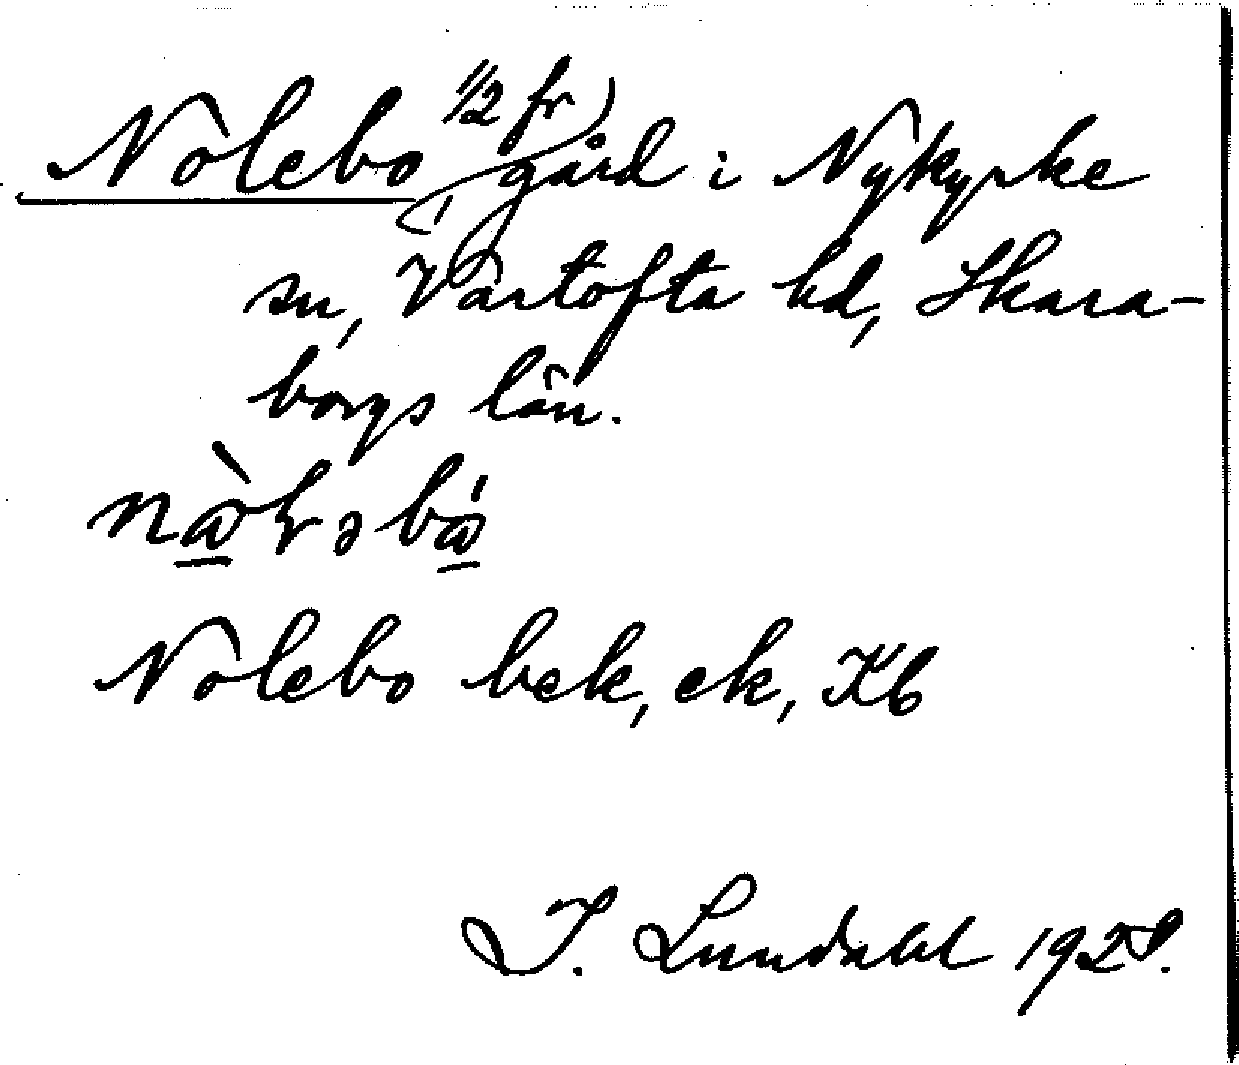 Nolebo 1/2 fr gård i Nykyrke
sn, Vartofta hd, Skara-
borgs län.
Nolebo bek, ek, Kb
I. Lundahl 1928.